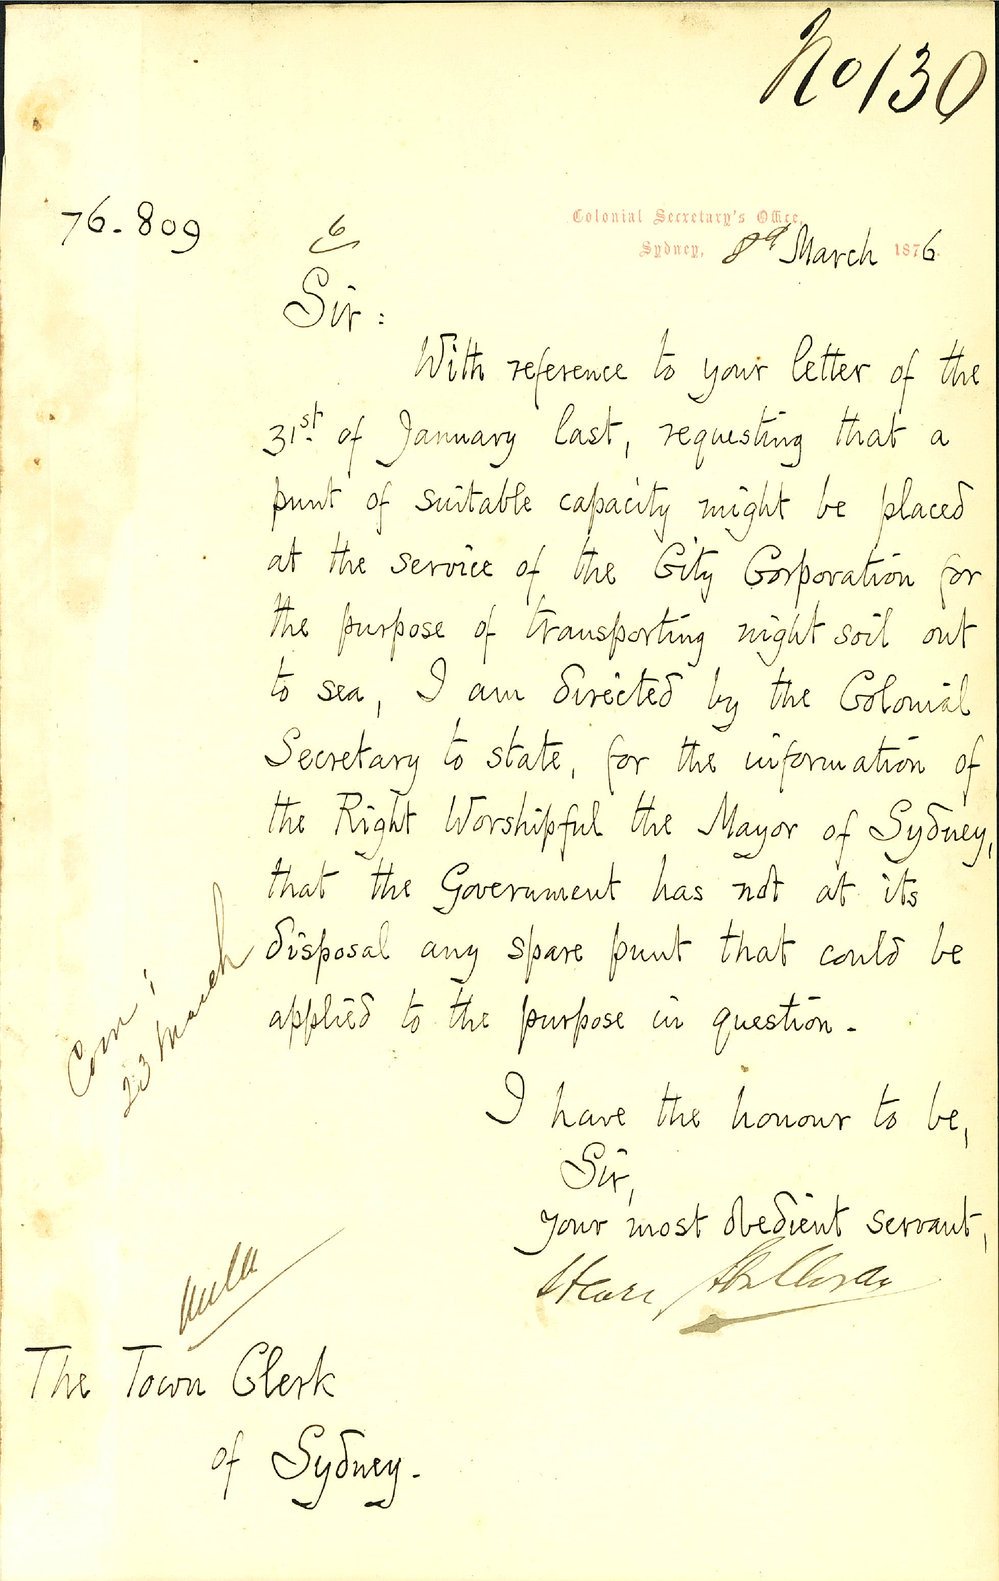 No 130
76.809
Colonial Secretary's Office,
Sydney, 8th March 1876.
6
Sir:
With reference to your letter of the
31st. of January last, requesting that a
punt of suitable capacity might be placed
at the service of the City Corporation for
the purpose of transporting night soil out
to sea, I am directed by the Colonial
Secretary to state, for the information of
the Right Worshipful the Mayor of Sydney,
that the Government has not at its
disposal any spare punt that could be
applied to the purpose in question.-
Com:
23 March
I have the honour to be,
Sir,
your most obedient servant,
Henry Halloran
The Town Clerk
of Sydney.